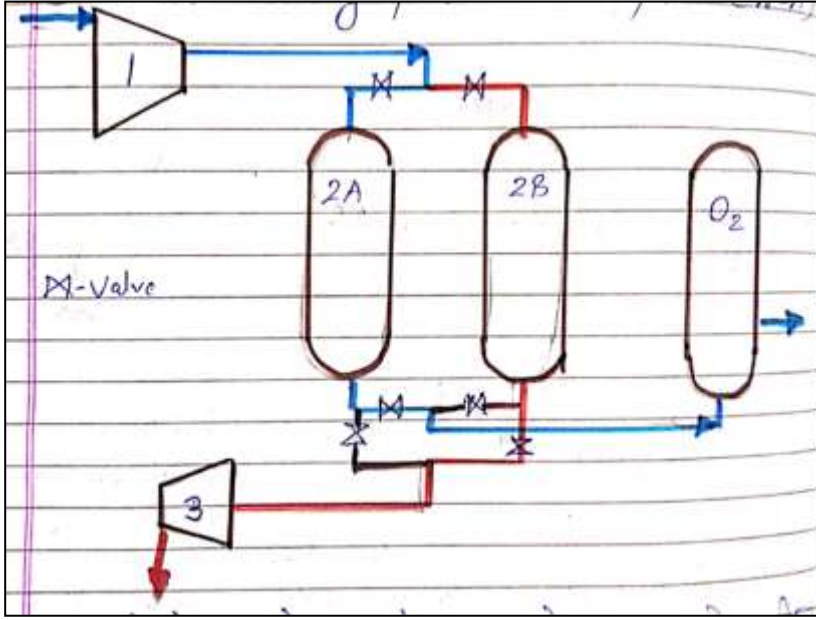 1
2A
2B
O₂
⋈-Valve
3